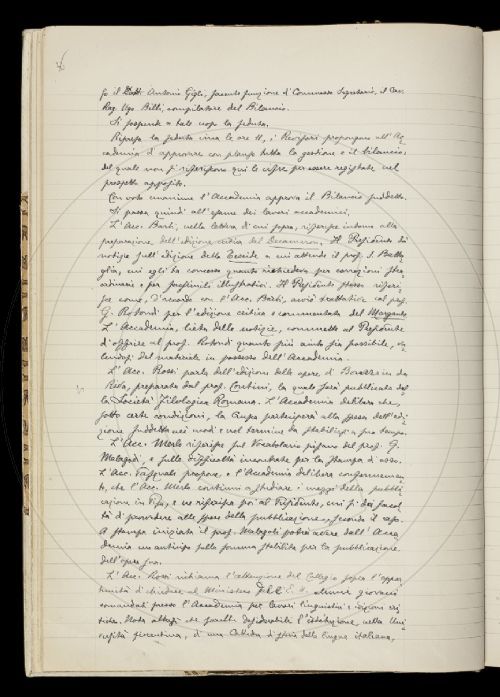 so il Dott. Antonio Gigli, facente funzione di Commesso Segretario, il Cav.
Rag. Ugo Billi, compilatore del Bilancio.
Si sospende a tale uopo la seduta.
Ripresa la seduta circa le ore 11, i Revisori propongono all'Ac
cademia d'approvare con plauso tutta la gestione e il bilancio,
del quale non si riferiscono qui le cifre per essere registrate nel
prospetto apposito.
Con voto unanime l'Accademia approva il Bilancio suddetto.
Si passa quindi all'esame dei lavori accademici.
L'Acc. Barbi, nella lettera di cui sopra, riferisce intorno alla
preparazione dell'edizione critica del Decameron. Il Presidente dà
notizie sull'edizione della Teseide a cui attende il prof. S. Batta
glia, cui egli ha concesso quanto richiedeva per correzioni stra
ordinarie e per facsimili illustrativi. Il Presidente stesso riferi
sce come, d'accordo con l'Acc. Barbi, avviò trattative col prof.
G. Rotondi per l'edizione critica e commentata del Morgante.
L'Accademia, lieta della notizia, commette al Presidente
d'offrire al prof. Rotondi quanto più aiuto sia possibile, va
lendosi del materiale in possesso dell'Accademia.
L'Acc. Rossi parla dell'edizione delle opere di Bonvesin da
Riva, preparata dal prof. Contini, la quale sarà pubblicata dal
la Società Filologica Romana. L'Accademia delibera che,
sotto certe condizioni, la Crusca parteciperà alla spesa dell'edi
zione suddetta nei modi e nel termine da stabilirsi a suo tempo.
L'Acc. Merlo riferisce sul Vocabolario pisano del prof. G.
Malagoli, e sulle difficoltà incontrate per la stampa d'esso.
L'Acc. Pasquali propone, e l'Accademia delibera conformemen
te, che l'Acc. Merlo continui a studiare i mezzi della pubbli
cazione in Pisa, e ne riferisca poi al Presidente, cui si dà facol
tà di provvedere alle spese della pubblicazione, secondo il caso.
A stampa iniziata il prof. Malagoli potrà avere dall'Acca
demia un anticipo sulla somma stabilita per la pubblicazione
dell'opera sua.
L'Acc. Rossi richiama l'attenzione del Collegio sopra l'oppor
tunità di chiedere al Ministero dell'E. N. alcuni giovani
comandati presso l'Accademia per lavori linguistici e edizioni cri
tiche. Nota altresì che sarebbe desiderabile l'istituzione, nella Uni
versità fiorentina, di una Cattedra di storia della lingua italiana,